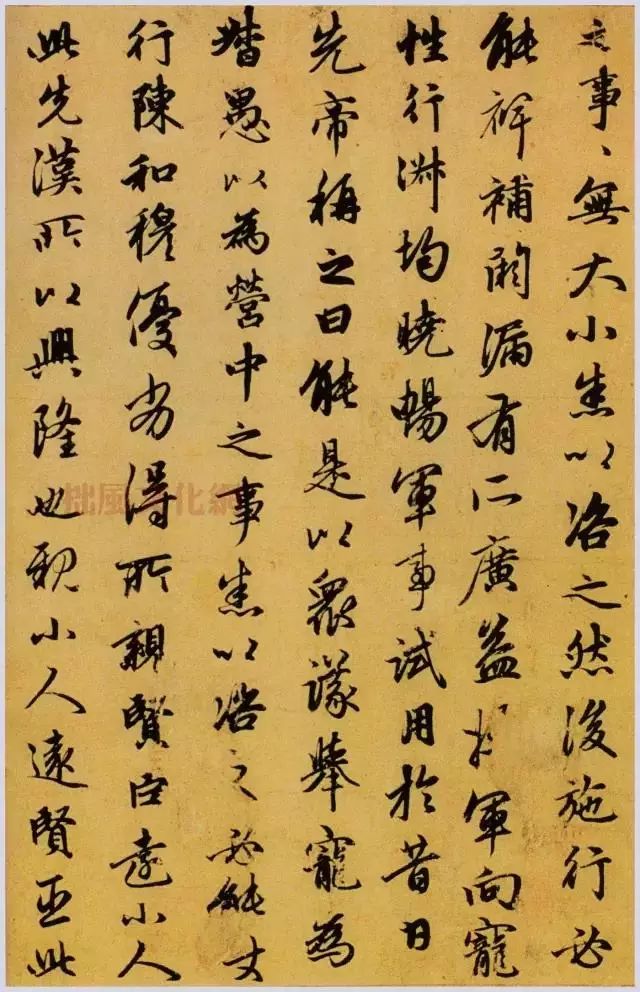 之事、無大小悉以咨之然後施行必
能裨補闕漏有所廣益将軍向寵
性行淑均曉暢軍事試用於昔日
先帝稱之曰能是以衆議舉寵為
督愚以為營中之事悉以咨之必能使
行陳和穆優劣得所親賢臣遠小人
此先漢所以興隆也親小人遠賢臣此
拙風文化網